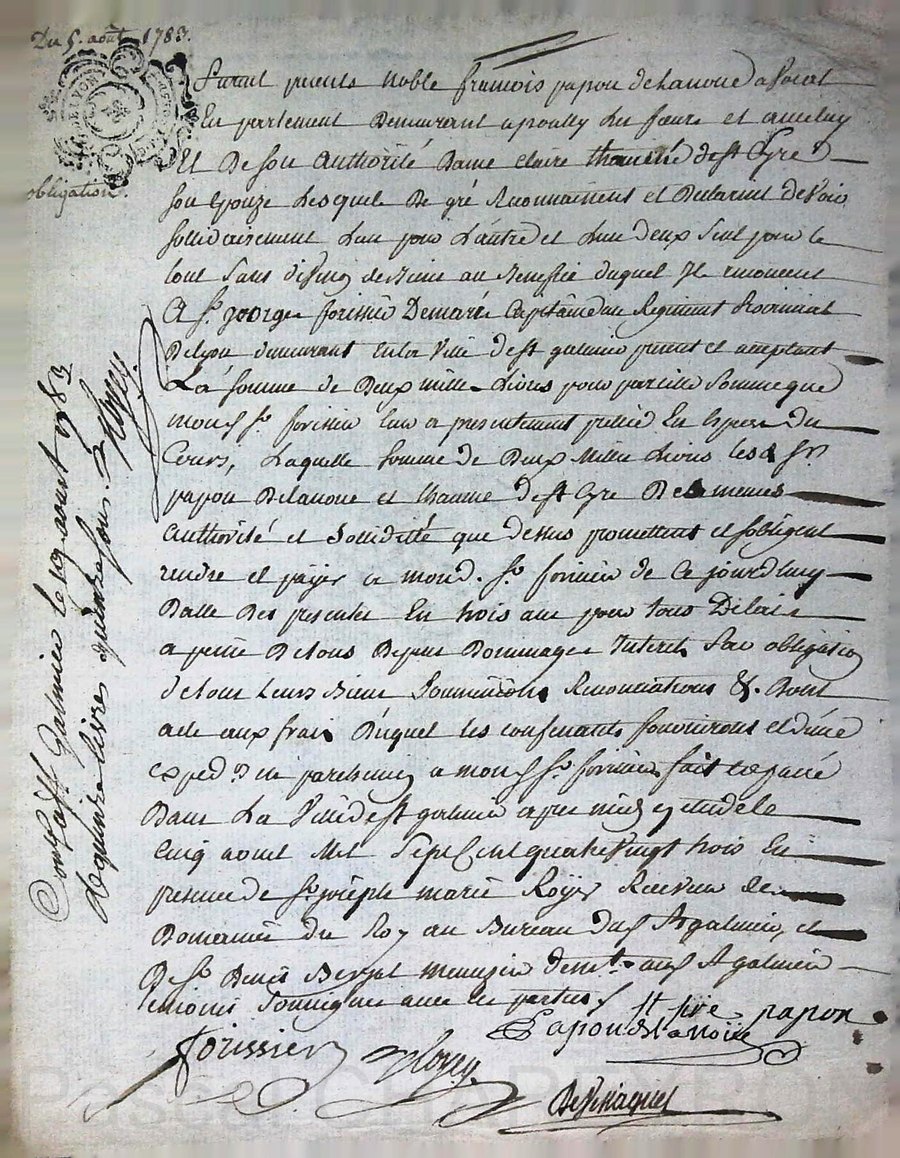 Du 5. août 1783.
obligation.
furent presents noble francois papon delanoue avocat
En parlement Demeurant a pouilly les feurs et
Et De son authorité Dame claire de St Cyre
son Epouze Lesquels De gré Reconnaissent et Declarent devoir
sollidairement l'un pour L'autre et l'un deux seul pour le
tout sans division
A Sr. george forissier Capitaine au Regiment Provincial
Delyon demeurant En la Ville de St galmier present et acceptant
La somme de Deux mille Livres pour pareille somme que
mond Sr. forissier Leur a presentement En Especes du
Cours, Laquelle somme de Deux Mille Livres lesd Srs
papon Delanoue et Dame de St Cyre Des memes
authorité et Sollidité que dessus promettent et sobligent
rendre et payer a mond. Sr. forissier de Ce jourdhuy
Datte Des presentes En trois ans pour tous Delais
a peine De tous Depens Dommages Interets Sous obligation
de tous Leurs Biens Soumissions Renonciations &. Dont
acte aux frais Duquel les confessants fourniront et d'une
exped.on en parchemin a mond Sr. forissier fait et passé
Dans La Ville de St galmier apres midy
cinq aoust Mil Sept Cent quatrevingt trois En
presence de Sr. joseph marie Royer Receveur des
Domaines du Roy au Bureau dud St galmier, et
De Sr. Denis menuisier demt. aud St galmier
temoins Soussignes avec les parties
St sire papon
Papon Delanoüe
forissier
Royer
Controllé St Galmier le 19 aoust 1783
Reçu quinze livres quinze sous. Royer